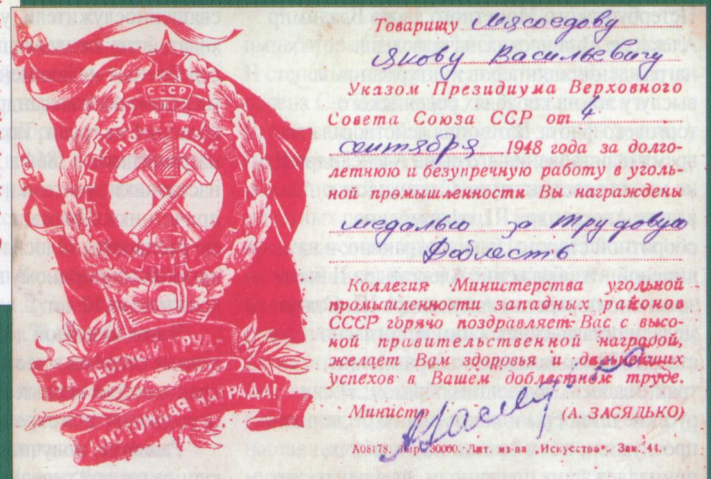 СССР
ПОЧЕТНЫЙ
ШАХТЕР
ЗА ЧЕСТНЫЙ ТРУД-
ДОСТОЙНАЯ НАГРАДА!
Товарищу Мясоедову
Якову Васильевичу
Указом Президиума Верховного
Совета Союза ССР от 4
сентября 1948 года за долго-
летнюю и безупречную работу в уголь-
ной промышленности Вы награждены
медалью за трудовую
доблесть
Коллегия Министерства угольной
промышленности западных районов
СССР горячо поздравляет Вас с высо-
кой правительственной наградой,
желает Вам здоровья и дальнейших
успехов в Вашем доблестном труде.
Министр (А. ЗАСЯДЬКО)
А08178. Тир. 30000. Лит. из-ва „Искусство“ Зак. 44.